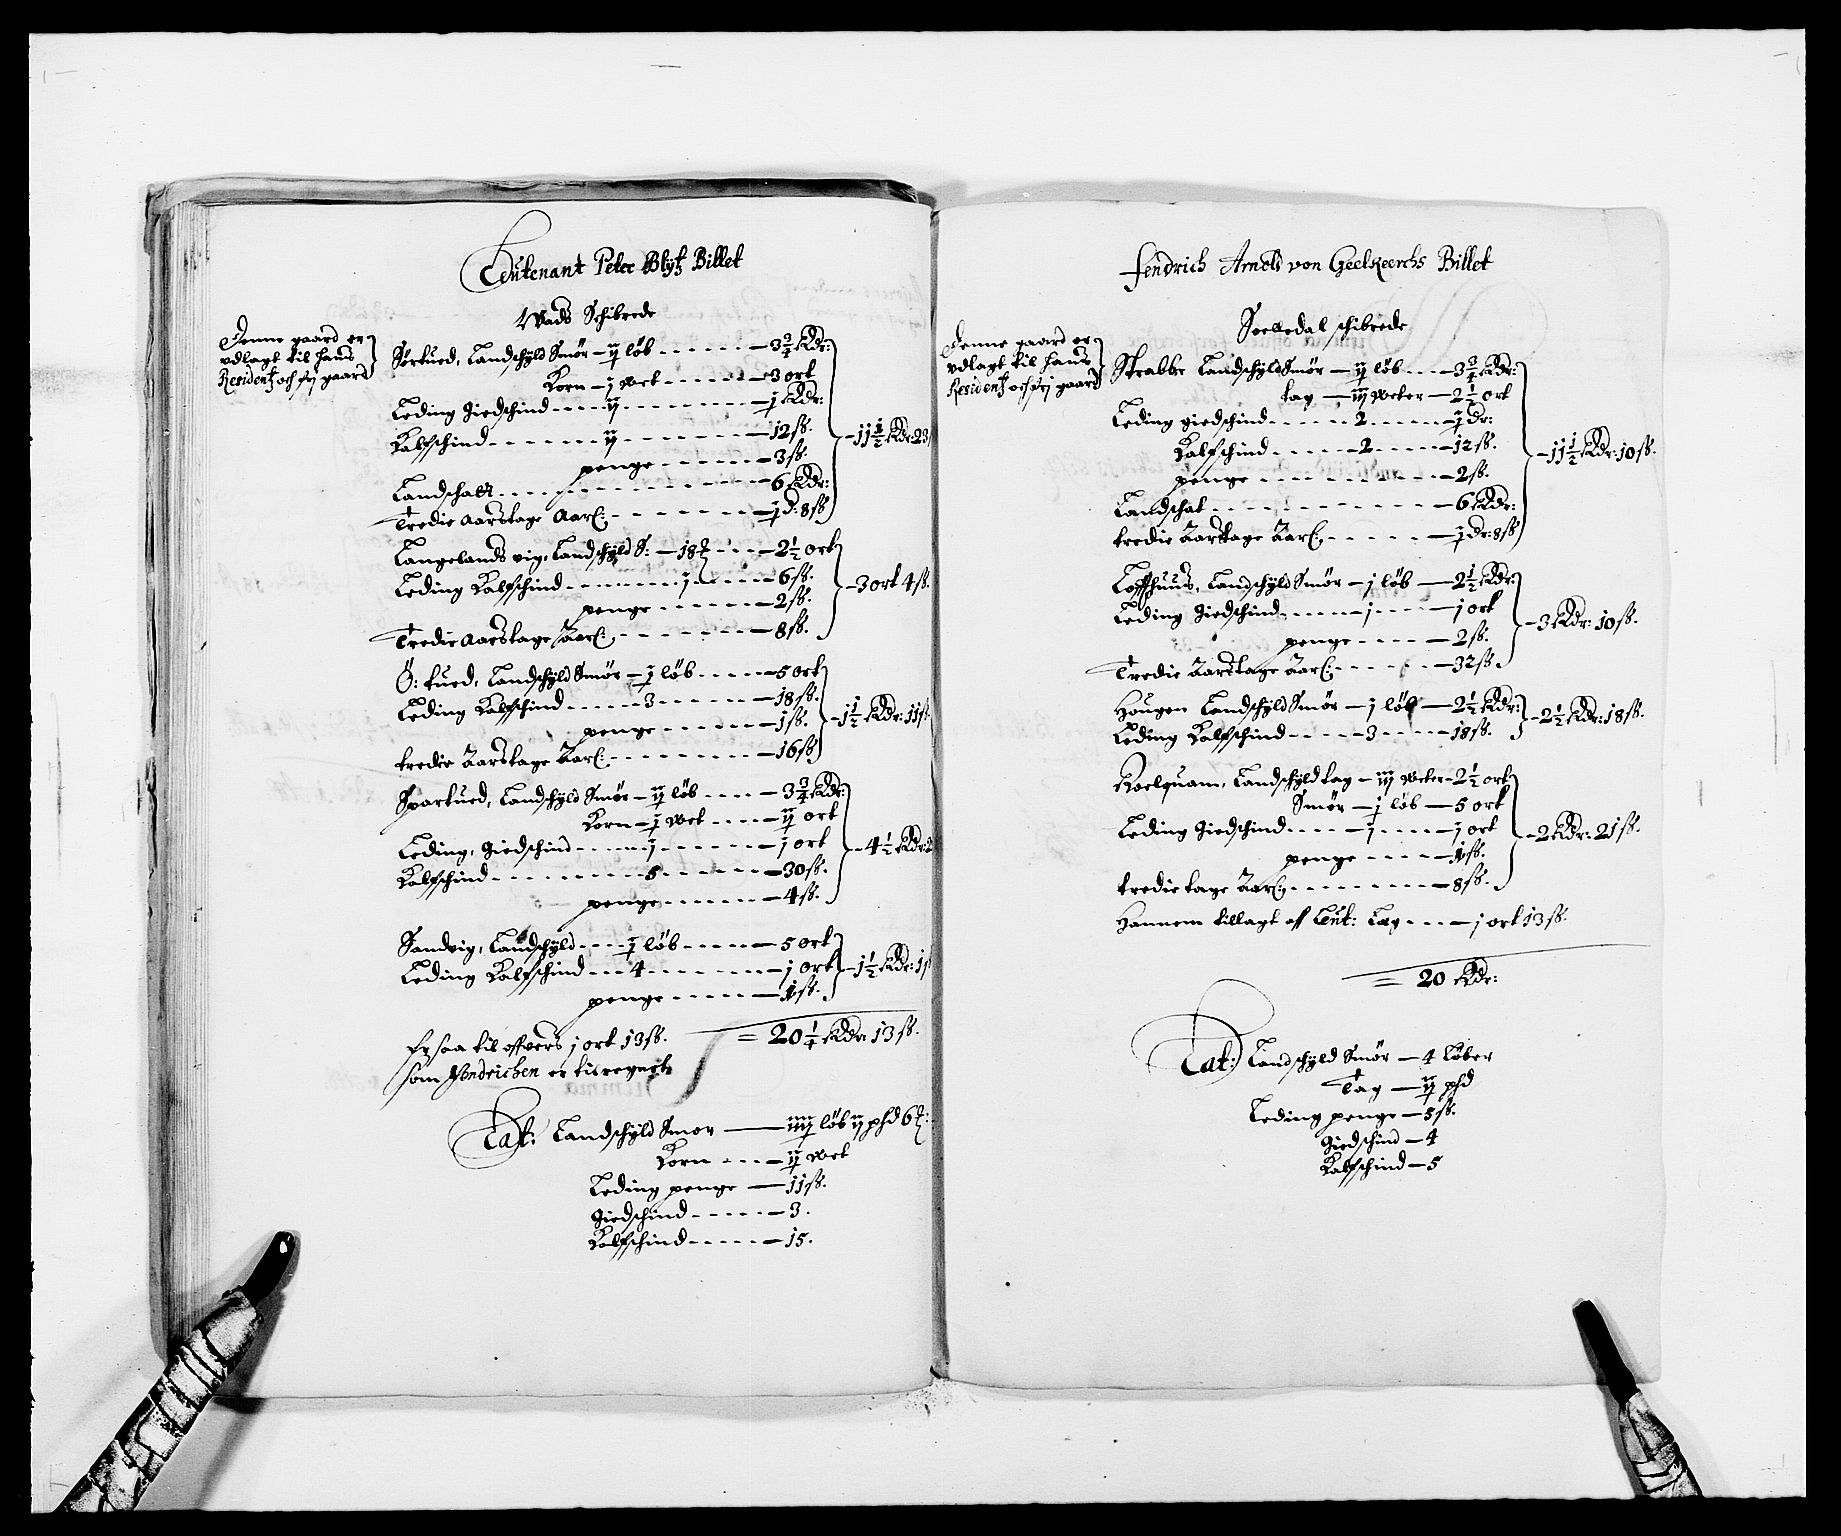 Leutenant Peter Blyt Billet
Wads Schibrede
Denne gaard er
udlagt til hans
Residentz och frj gaard
Sørtued, Landschyld Smør – ij løb – 3 3/4 Rdr:
Korn – j wet – 3 ort
Leding Giedschind – ij – j Rdr:
Kalfschind – ij – 12 ss.
penge – 3 ss.
Landschatt – 6 Rdr:
Tredie Aarstage Aarl: – j d: 8 ss
– 11 1/2 Rdr: 23
Langelands vig, Landschyld S: – 18 – 2 1/2 ort
Leding Kalfschind – 1 – 6 ss.
penge – 2 ss.
Tredie Aarstage Aarl: – 8 ss.
– 3 ort 4 ss.
Ø: tued, Landschyld Smør – j løb – 5 ort
Leding Kalfschind – 3 – 18 ss.
penge – 1 ss.
tredie Aarstage Aarl: – 16 ss
– 1 1/2 Rdr: 11 ss
Spartued, Landschyld Smør – ij løb – 3 3/4 Rdr:
Korn – j wet – ij ort
Leding, Giedschind – 1 – 1 ort
Kalfschind – 5 – 30 ss.
penge – 4 ss.
– 4 1/2 Rdr: 2
Sandvig, Landschyld – j løb – 5 ort
Leding Kalfschind – 4 – 1 ort
penge – 1 ss.
– 1 1/2 Rdr: 1 s
Er saa til offvers 1 ort 13 ss. = 20 1/4 Rdr: 13 ss.
som Fendrichen er tilregnet
Lat: Landschyld Smør – iiij løb ij pd 6
Korn – ij wet
Leding penge – 11 ss.
Giedschind – 3.
Kalfschind – 15.
Fendrich Arnold von Geelkeerchs Billet
schibrede
Denne gaard er
udlagt til hans
Residentz och frj gaard
Strabbe Landschyld Smør – ij løb – 3 3/4 Rdr:
tag – iij weter – 2 1/2 ort
Leding giedschind – 2 – j Dr:
Kalfschind – 2 – 12 ss.
penge – 2 ss.
Landschat – 6 Rdr:
tredie Aarstage Aarl: – j Dr: 8 ss
– 11 1/2 Rdr: 10 ss.
Lofthuus, Landschyld Smør – 1 løb – 2 1/2 Rdr:
Leding Giedschind – 1 – 1 ort
penge – 2 ss.
Tredie Aarstage Aarl: – 32 ss.
– 3 Rdr: 10 ss.
Hougen Landschyld Smør – 1 løb – 2 1/2 Rdr:
Leding Kalfschind – 3 – 18 ss.
– 2 1/2 Rdr: 18 ss.
Roelquam, Landschyld tag – iij weter – 2 1/2 ort
Smør – j løb – 5 ort
Leding Giedschind – 1 – 1 ort
penge – 1 ss.
tredie tage Aarl: – 8 ss.
– 2 Rdr: 21 ss.
Hannem tillagt aff Leut: Læg – 1 ort 13 ss.
= 20 Rdr:
Lat: Landschyld Smør – 4 Løber
Tag – ij pd
Leding penge – 5 ss.
Giedschind – 4
Kalfschind – 5